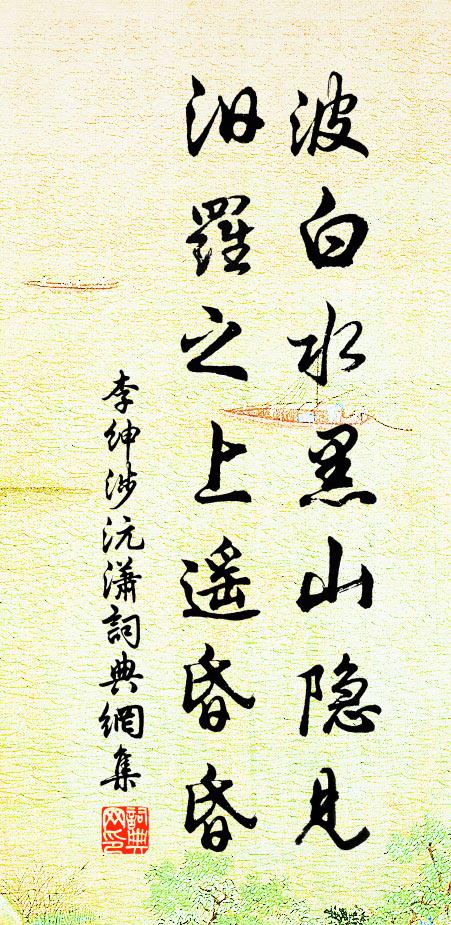 波白水黑山隐见
汨羅之上遥昏昏
李紳涉沅瀟詞典網集
詞典網印